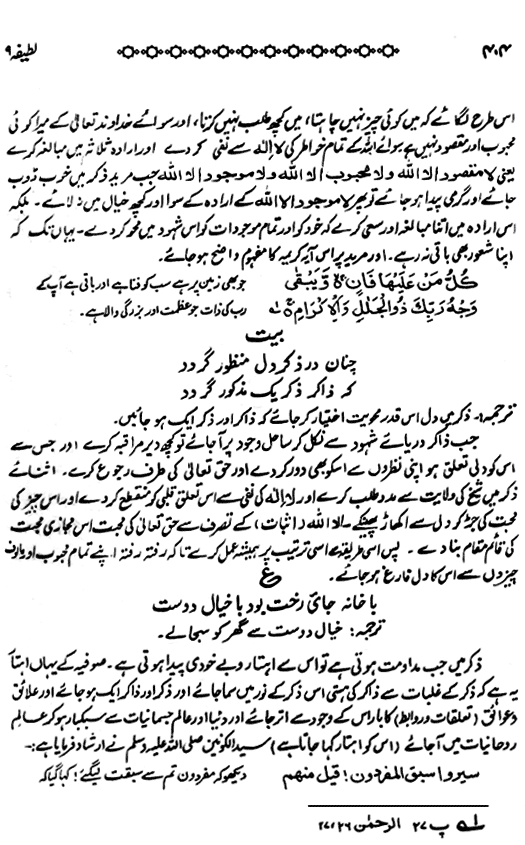 ۴۰۴ لطیفہ ۹
اس طرح لگائے کہ میں کوئی چیز نہیں چاہتا، میں کچھ طلب نہیں کرتا، اور سوائے خداوند تعالیٰ کے میرا کوئی
محبوب اور مقصود نہیں ہے سوائے اللہ کے تمام خواطر کی لا الٰہ سے نفی کر دے اور ارادہ ثلاثہ میں مبالغہ کرے
یعنی لا مقصود الا اللہ ولا محبوب الا اللہ ولا موجود الا اللہ جب مرید ذکر میں خوب ڈوب
جائے اور گرمی پیدا ہو جائے تو پھر لا موجود الا اللہ کے ارادہ کے سوا اور کچھ خیال میں نہ لائے۔ بلکہ
اس ارادہ میں اتنا مبالغہ اور سعی کرے کہ خود کو اور تمام موجودات کو اس شہود میں محو کر دے۔ یہاں تک کہ
اپنا شعور بھی باقی نہ رہے۔ اور مرید پر اس آیہ کریمہ کا مفہوم واضح ہو جائے۔
كُلُّ مَنْ عَلَيْهَا فَانٍ ۚ وَّيَبْقٰى جو بھی زمین پر ہے سب کو فنا ہے اور باقی ہے آپ کے
وَجْهُ رَبِّكَ ذُو الْجَلٰلِ وَالْاِكْرَامِ ۚ لہ رب کی ذات جو عظمت اور بزرگی والا ہے۔
بیت
چناں در ذکر دل منظور گردد
کہ ذاکر ذکر یک مذکور گردد
ترجمہ:۔ ذکر میں دل اس قدر محویت اختیار کر جائے کہ ذاکر اور ذکر ایک ہو جائیں۔
جب ذاکر دریائے شہود سے نکل کر ساحل وجود پر آجائے تو کچھ دیر مراقبہ کرے اور جس سے
اس کو دلی تعلق ہو اپنی نظروں سے اسکو بھی دور کر دے اور حق تعالیٰ کی طرف رجوع کرے۔ اثنائے
ذکر میں شیخ کی ولایت سے مدد طلب کرے اور لا الٰہ کی نفی سے اس تعلق قلبی کو منقطع کر دے اور اس چیز کی
محبت کی جڑ کو دل سے اکھاڑ پھینکے۔ الا اللہ (اثبات) کے تصرف سے حق تعالیٰ کی محبت اس مجازی محبت
کی قائم مقام بنا دے۔ پس اسی طریقے اسی ترتیب پر ہمیشہ عمل کرے تاکہ رفتہ رفتہ اپنے تمام محبوب اور مالوف
چیزوں سے اس کا دل فارغ ہو جائے۔
ع
با خانہ جائ رخت بود با خیال دوست
ترجمہ: خیال دوست سے گھر کو سجالے۔
ذکر میں جب مداومت ہوتی ہے تو اس سے اہتار و بے خودی پیدا ہوتی ہے۔ صوفیہ کے یہاں اہتار
یہ ہے کہ ذکر کے غلبات سے ذاکر کی ہستی اس ذکر کے نور میں سما جائے اور ذکر اور ذاکر ایک ہو جائے اور علائق
و عوائق (تعلقات و روابط) کا بار اس کے وجود سے اتر جائے اور دنیا اور عالم جسمانیات سے سبکبار ہو کر عالم
روحانیات میں آجائے (اس کو اہتار کہا جاتا ہے) سید الکونین صلی اللہ علیہ وسلم نے ارشاد فرمایا ہے:۔
سیروا سبق المفردون؛ قیل منھم دیکھو کہ مفردون تم سے سبقت لیگئے؛ کہا گیا کہ
لہ پ ۲۷ الرحمٰن ۲۷،۲۶